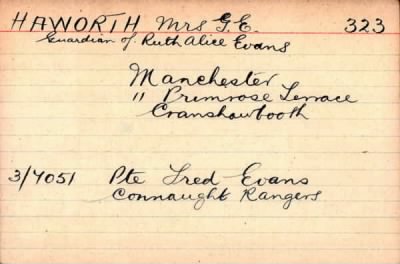 HAWORTH Mrs G.E. 323
Guardian of Ruth Alice Evans
Manchester
11 Primrose Terrace
Cranshawbooth
3/7051 Pte Fred Evans
Connaught Rangers